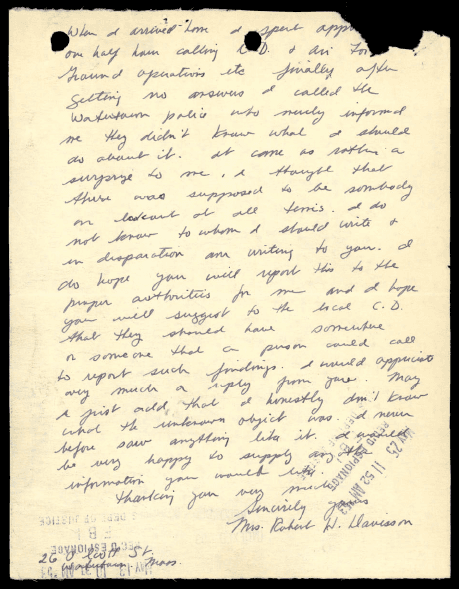 When I arrived home I spent appro
one half hour calling C.D. & Air For
Ground operations etc finally after
getting no answers I called the
Watertown police who merely informed
me they didn't know what I should
do about it. It came as rather a
surprize to me, I thought that
there was supposed to be sombody
on lookout at all times. I do
not know to whom I should write &
in disparation am writing to you. I
do hope you will report this to the
proper authorities for me and I hope
you will suggest to the local C.D.
that they should have somewhere
or someone that a person could call
to report such findings. I would appreciate
very much a reply from you. May
I just add, that I honestly don't know
what the unknown object was. I never
before saw anything like it. I would
be very happy to supply any
information you would
Thanking you very much
Sincerely yours
Mrs. Robert H. Davisson
26 Scott St.
Watertown Mass.
MAY 25 11 52 AM
REC'D ESPIONAGE
U S DEPT OF JUSTICE
F B I
REC'D ESPIONAGE